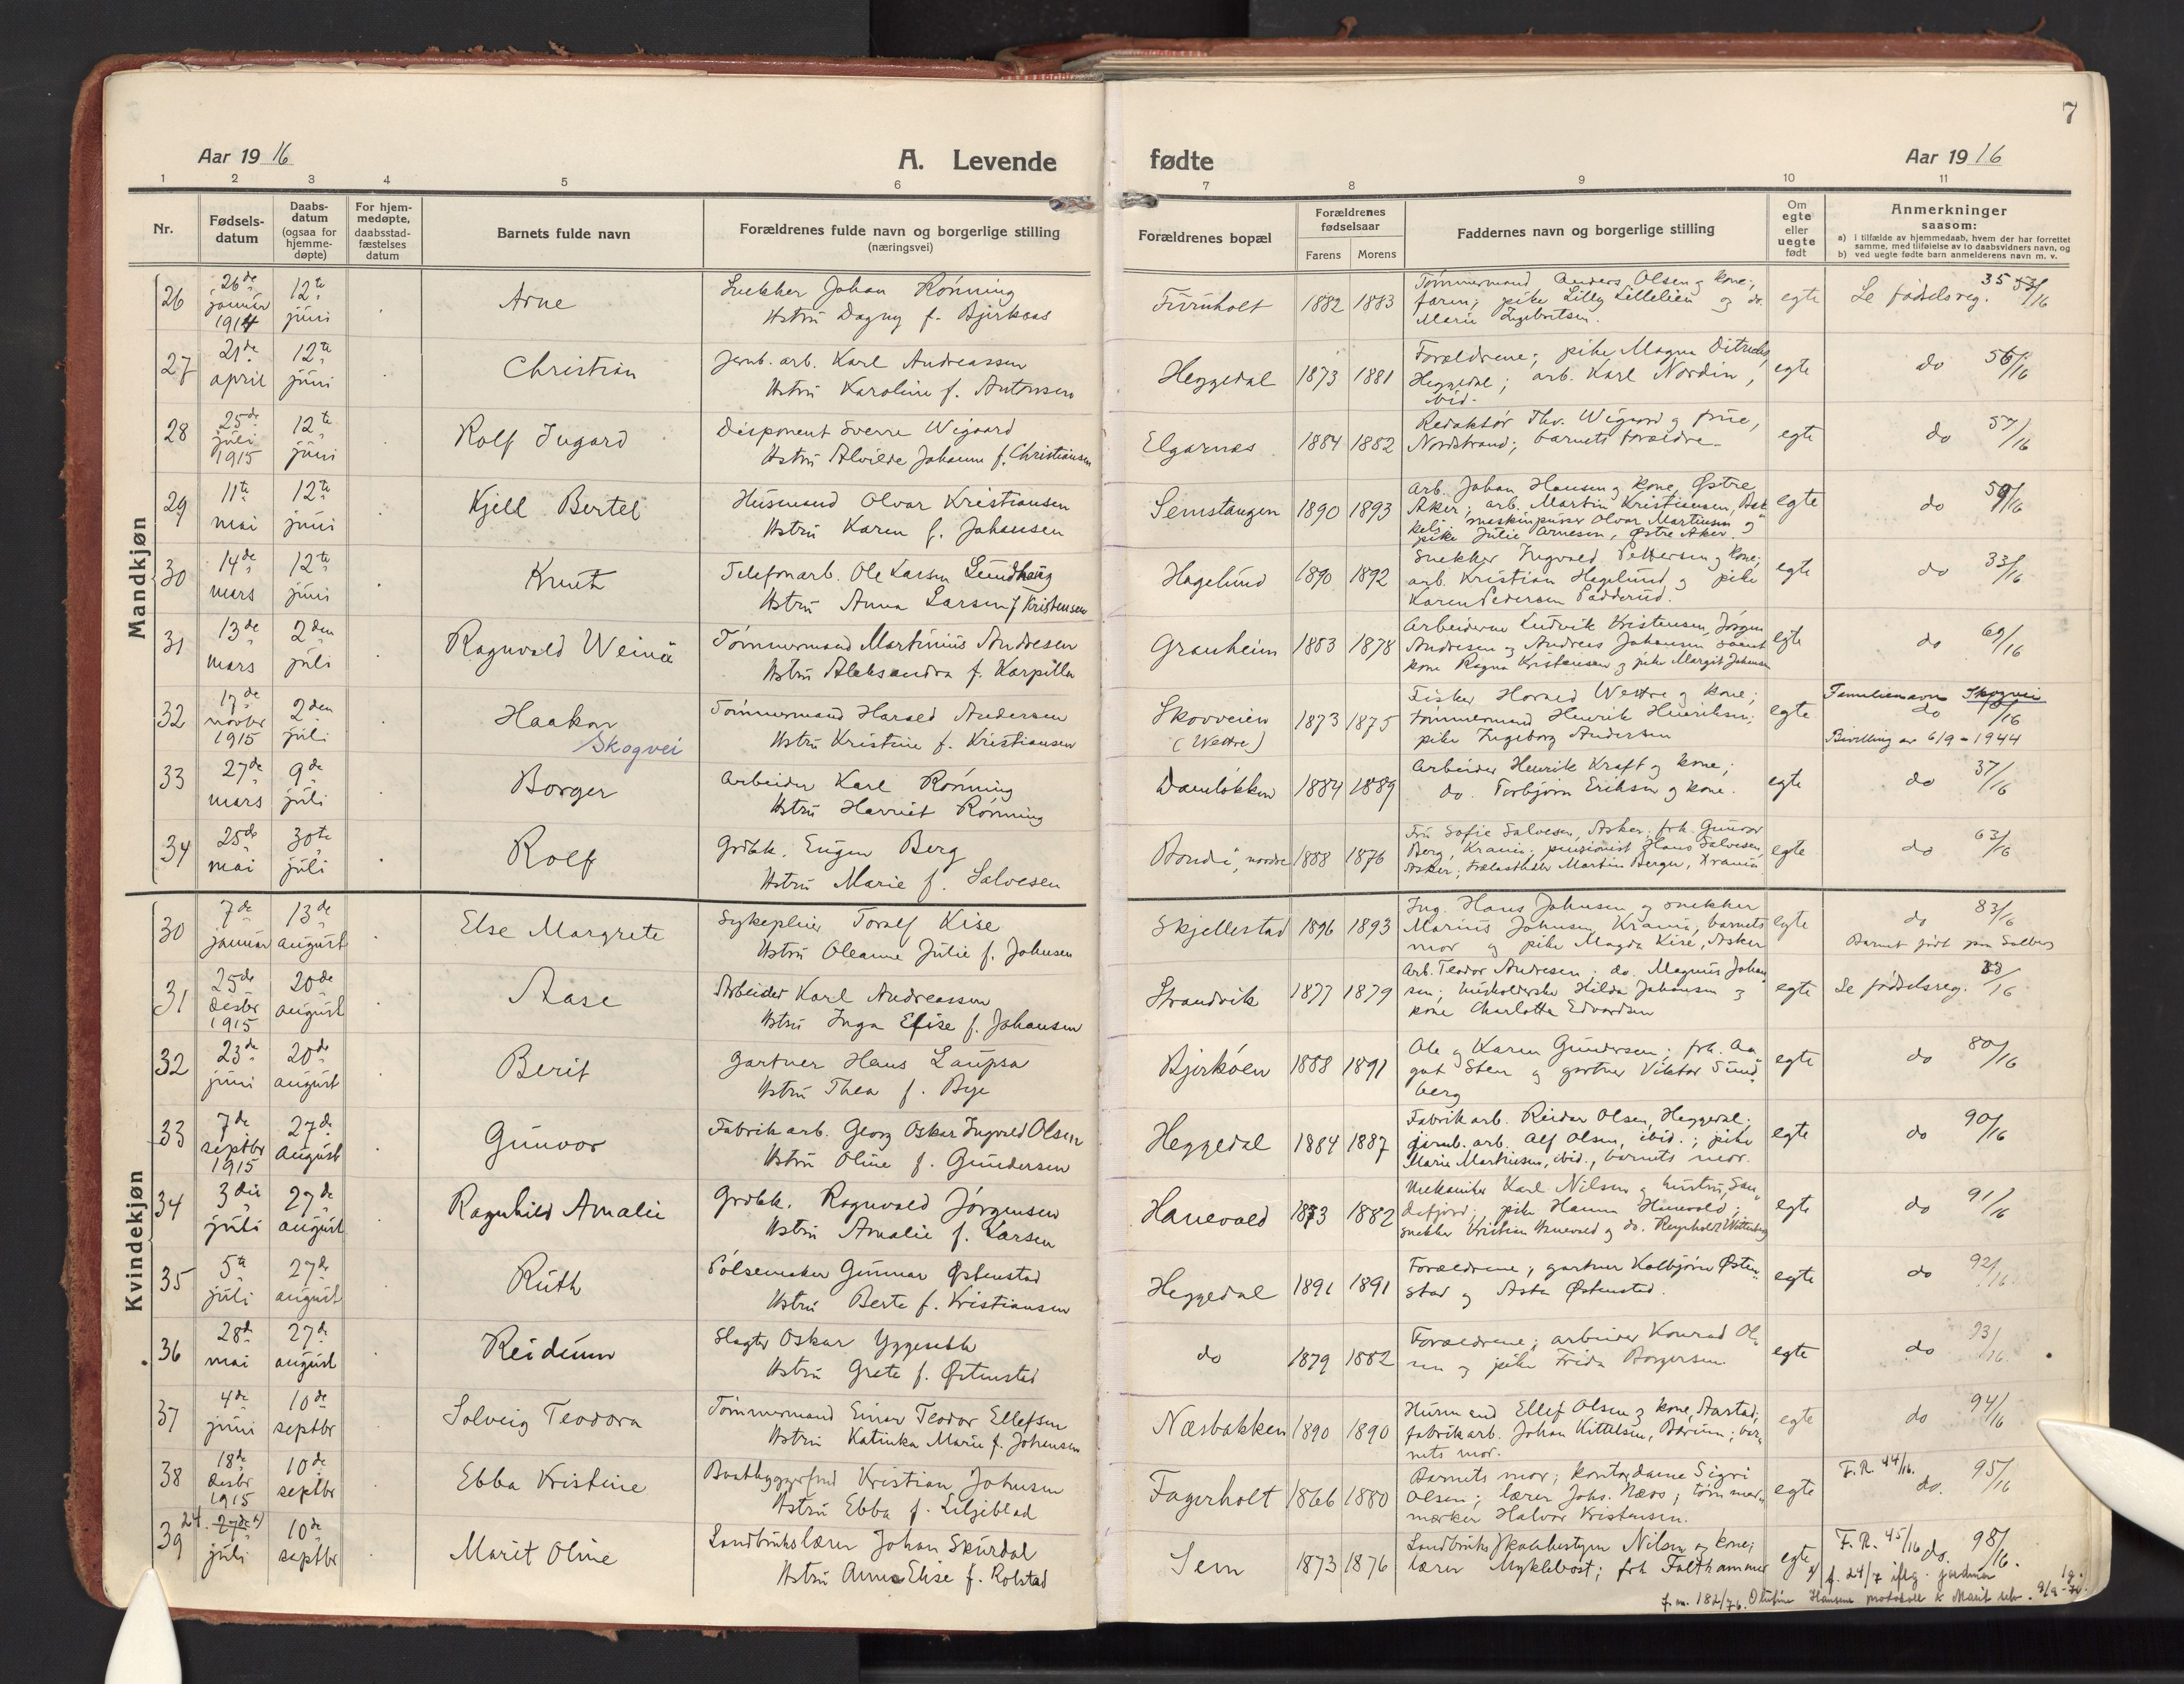 7
Aar 1916
A. Levende
fødte
Aar 1916
1 2 3 4 5 6
7 8 9 10 11
Nr.
Fødsels-
datum
Daabs-
datum
(ogsaa for
hjemme-
døpte)
For hjem-
medøpte,
daabsstad-
fæstelses
datum
Barnets fulde navn
Forældrenes fulde navn og borgerlige stilling
(næringsvei)
Forældrenes bopæl
Forældrenes
fødselsaar
Farens Morens
Faddernes navn og borgerlige stilling
Om
egte
eller
uegte
født
Anmerkninger
saasom:
a) I tilfælde av hjemmedaab, hvem der har forrettet
samme, med tilføielse av to daabsvidners navn, og
b) ved uegte fødte barn anmelderens navn m. v.
Mandkjøn
26 26de januar 1914 12te juni Arne
Snekker Johan Rønning
Hstru Dagny f. Bjerkaas
Furuholt 1882 1883
Tømmermand Anders Olsen og kone;
faren; pike Lilly Lillelien og do.
Marie Ingebretsen.
egte Se fødselsreg. 35 53/16
27 21de april 12te juni Christian
Jernb. arb. Karl Andreassen
Hstru Karoline f. Antonsen
Heggedal 1873 1881
Forældrene; pike Magna Ditrichs,
Heggedal; arb. Karl Nordin,
ibid.
egte do 56/16
28 25de juli 1915 12te juni Rolf Ingard
Disponent Sverre Wigaard
Hstru Alvilde Johanne f. Christiansen
Elgarnes 1884 1882
Redaktør Thv. Wigaard og frue,
Nordstrand; barnets forældre.
egte do 57/16
29 11te mai 12te juni Kjell Bertel
Husmand Olvar Kristiansen
Hstru Karen f. Johansen
Semstangen 1890 1893
Arb. Johan Hansen og kone, Østre
Aker; arb. Martin Kristiansen,
maskinpusser Olvar Martinsen og
pike Julie Arnesen, Østre Aker.
egte do 59/16
30 14de mars 12te juni Knut
Telefonarb. Ole Larsen Lundhaug
Hstru Anna Larsen f. Kristensen
Hagelund 1890 1892
Snekker Ingvald Pettersen og kone;
arb. Kristian Hagelund og pike
Karen Pedersen Padderud.
egte do 33/16
31 13de mars 2den juli Ragnvald Weinü
Tømmermand Martinius Andresen
Hstru Aleksandra f. Karpilla
Granheim 1883 1878
Arbeiderne Ludvik Kristensen, Jørgen
Andresen og Andreas Johansen samt
kone Ragna Kristensen og pike Margit Johansen
egte do 69/16
32 17de novbr 1915 2den juli Haakon
Skogvei
Tømmermand Harald Andersen
Hstru Kristine f. Kristiansen
Skovveien
(Wettre)
1873 1875
Fisker Harald Wettre og kone;
tømmermand Henrik Henriksen;
pike Ingeborg Andersen
egte Familienavn Skogvei
do
Bevilling av 6/9 - 1944
33 27de mars 9de juli Borger
Arbeider Karl Rønning
Hstru Harriet Rønning
Damløkken 1884 1889
Arbeider Henrik Kraft og kone;
do. Torbjørn Eriksen og kone.
egte do 37/16
34 25de mai 30te juli Rolf
Grdbk. Eugen Berg
Hstru Marie f. Salvesen
Bondi, nordre 1888 1876
Fru Sofie Salvesen, Asker; frk. Gunvor
Berg, Krania; pensionist Hans Salvesen,
Asker; trælasthdlr Martin Berger, Krania
egte do 63/16
Kvindekjøn
30 7de januar 13de august Else Margrete
Sykepleier Toralf Kise
Hstru Oleanna Julie f. Johnsen
Skjellestad 1896 1893
Ing. Hans Johnsen og snekker
Marius Johnsen, Krania; barnets
mor og pike Magda Kise, Asker
egte do 83/16
Barnet født paa Solberg
31 25de desbr 1915 20de august Aase
Arbeider Karl Andreassen
Hstru Inga Elise f. Johansen
Strandvik 1877 1879
Arb. Teodor Andresen; do. Magnus Johan
sen; husholderske Hilda Johansen og
kone Charlotte Edvardsen
egte Se fødselsreg. 38/16
32 23de juni 20de august Berit
Gartner Hans Laupsa
Hstru Thea f. Bye
Bjerkøen 1888 1891
Ole og Karen Gundersen; frk. Aa
got Sten og gartner Viktor Sund
berg
egte do 80/16
33 7de septbr 1915 27de august Gunvor
Fabrikarb. Georg Oskar Ingvald Olsen
Hstru Oline f. Gundersen
Heggedal 1884 1887
Fabrikarb. Reidar Olsen, Heggedal;
jernb. arb. Alf Olsen, ibid.; pike
Marie Martinsen, ibid., barnets mor.
egte do 90/16
34 3die juli 27de august Ragnhild Amalie
Grdbk. Ragnvald Jørgensen
Hstru Amalie f. Larsen
Hanevold 1873 1882
Mekaniker Karl Nilsen og hustru, San
defjord; pike Hanna Hanevold;
snekker Kristian Hanevold og do.
egte do 91/16
35 5te juli 27de august Ruth
Pølsemaker Gunnar Østenstad
Hstru Berte f. Kristiansen
Heggedal 1891 1891
Forældrene; gartner Kolbjørn Østen
stad og Asta Østenstad.
egte do 92/16
36 28de mai 27de august Reidunn
Slagter Oskar Yggeseth
Hstru Grete f. Østenstad
do 1879 1882
Forældrene; arbeider Konrad Ol
sen og pike Frida Borgersen.
egte do 93/16
37 4de juni 10de septbr Solveig Teodora
Tømmermand Einar Teodor Ellefsen
Hstru Katinka Marie f. Johansen
Næsbakken 1890 1890
Husmand Ellef Olsen og kone, Aastad;
fabrikarb. Johan Kittelsen, Bærum; bar
nets mor.
egte do 94/16
38 18de desbr 1915 10de septbr Ebba Kristine
Baatbyggerfm Kristian Johnsen
Hstru Ebba f. Liljeblad
Fagerholt 1866 1880
Barnets mor; kontordame Sigri
Olsen; lærer Johs. Næss; tømmer
mærker Halvor Kristensen.
egte F.R. 44/16. do. 95/16
39 24. 27de x) juli 10de septbr Marit Oline
Landbrukslærer Johan Skurdal
Hstru Anna Elise f. Rolstad
Sem 1873 1876
Landbruksskolebestyrer Nilsen og kone;
lærer Myklebost; frk Falthammer
egte F.R. 45/16 do. 98/16.
x) f. 24/7 iflg. jordmor
f.m. 182/76. Hansens protokoll & Marit selv. 9/9-76.